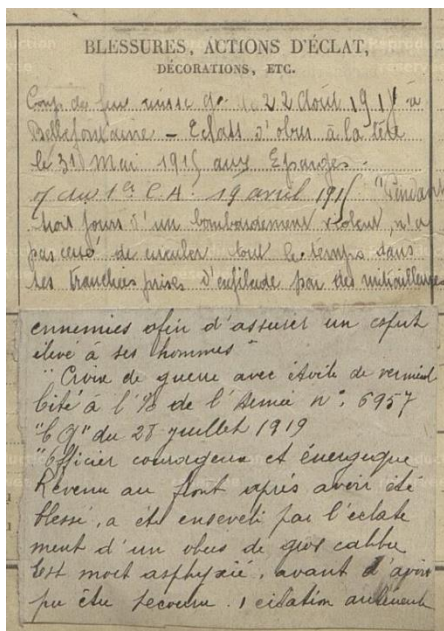 BLESSURES, ACTIONS D'ÉCLAT,
DÉCORATIONS, ETC.
Coup de feu cuisse g. le 22 Août 1914 à
Bellefontaine - Eclats d'obus à la tête
le 31 Mai 1915 aux Eparges.
du 1er C.A. 19 avril 1915 "Pendant
trois jours d'un bombardement violent, n'a
pas cessé de circuler tout le temps dans
ses tranchées prises d'enfilade par des mitrailleuses
ennemies afin d'assurer un esprit
élevé à ses hommes"
"Croix de guerre avec étoile de vermeil
Cité à l'O/ de l'Armée n°. 6957
"D" du 28 juillet 1919
"Officier courageux et énergique
Revenu au front après avoir été
blessé, a été enseveli par l'éclate
ment d'un obus de gros calibre
Est mort asphyxié, avant d'avoir
pu être secouru. 1 citation antérieure